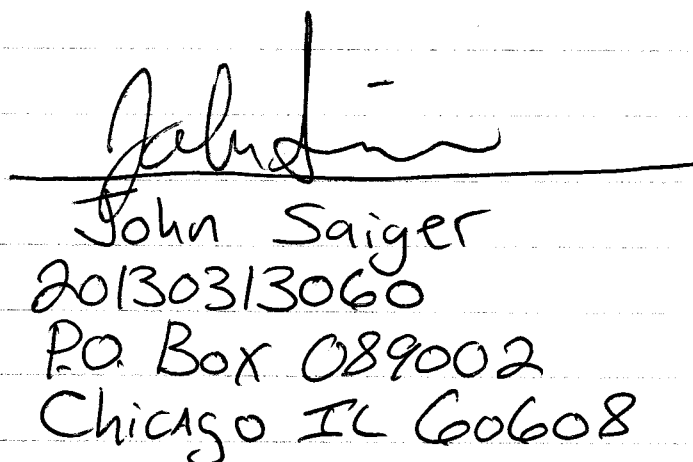 John Saiger
20130313060
P.O. Box 089002
Chicago IL 60608